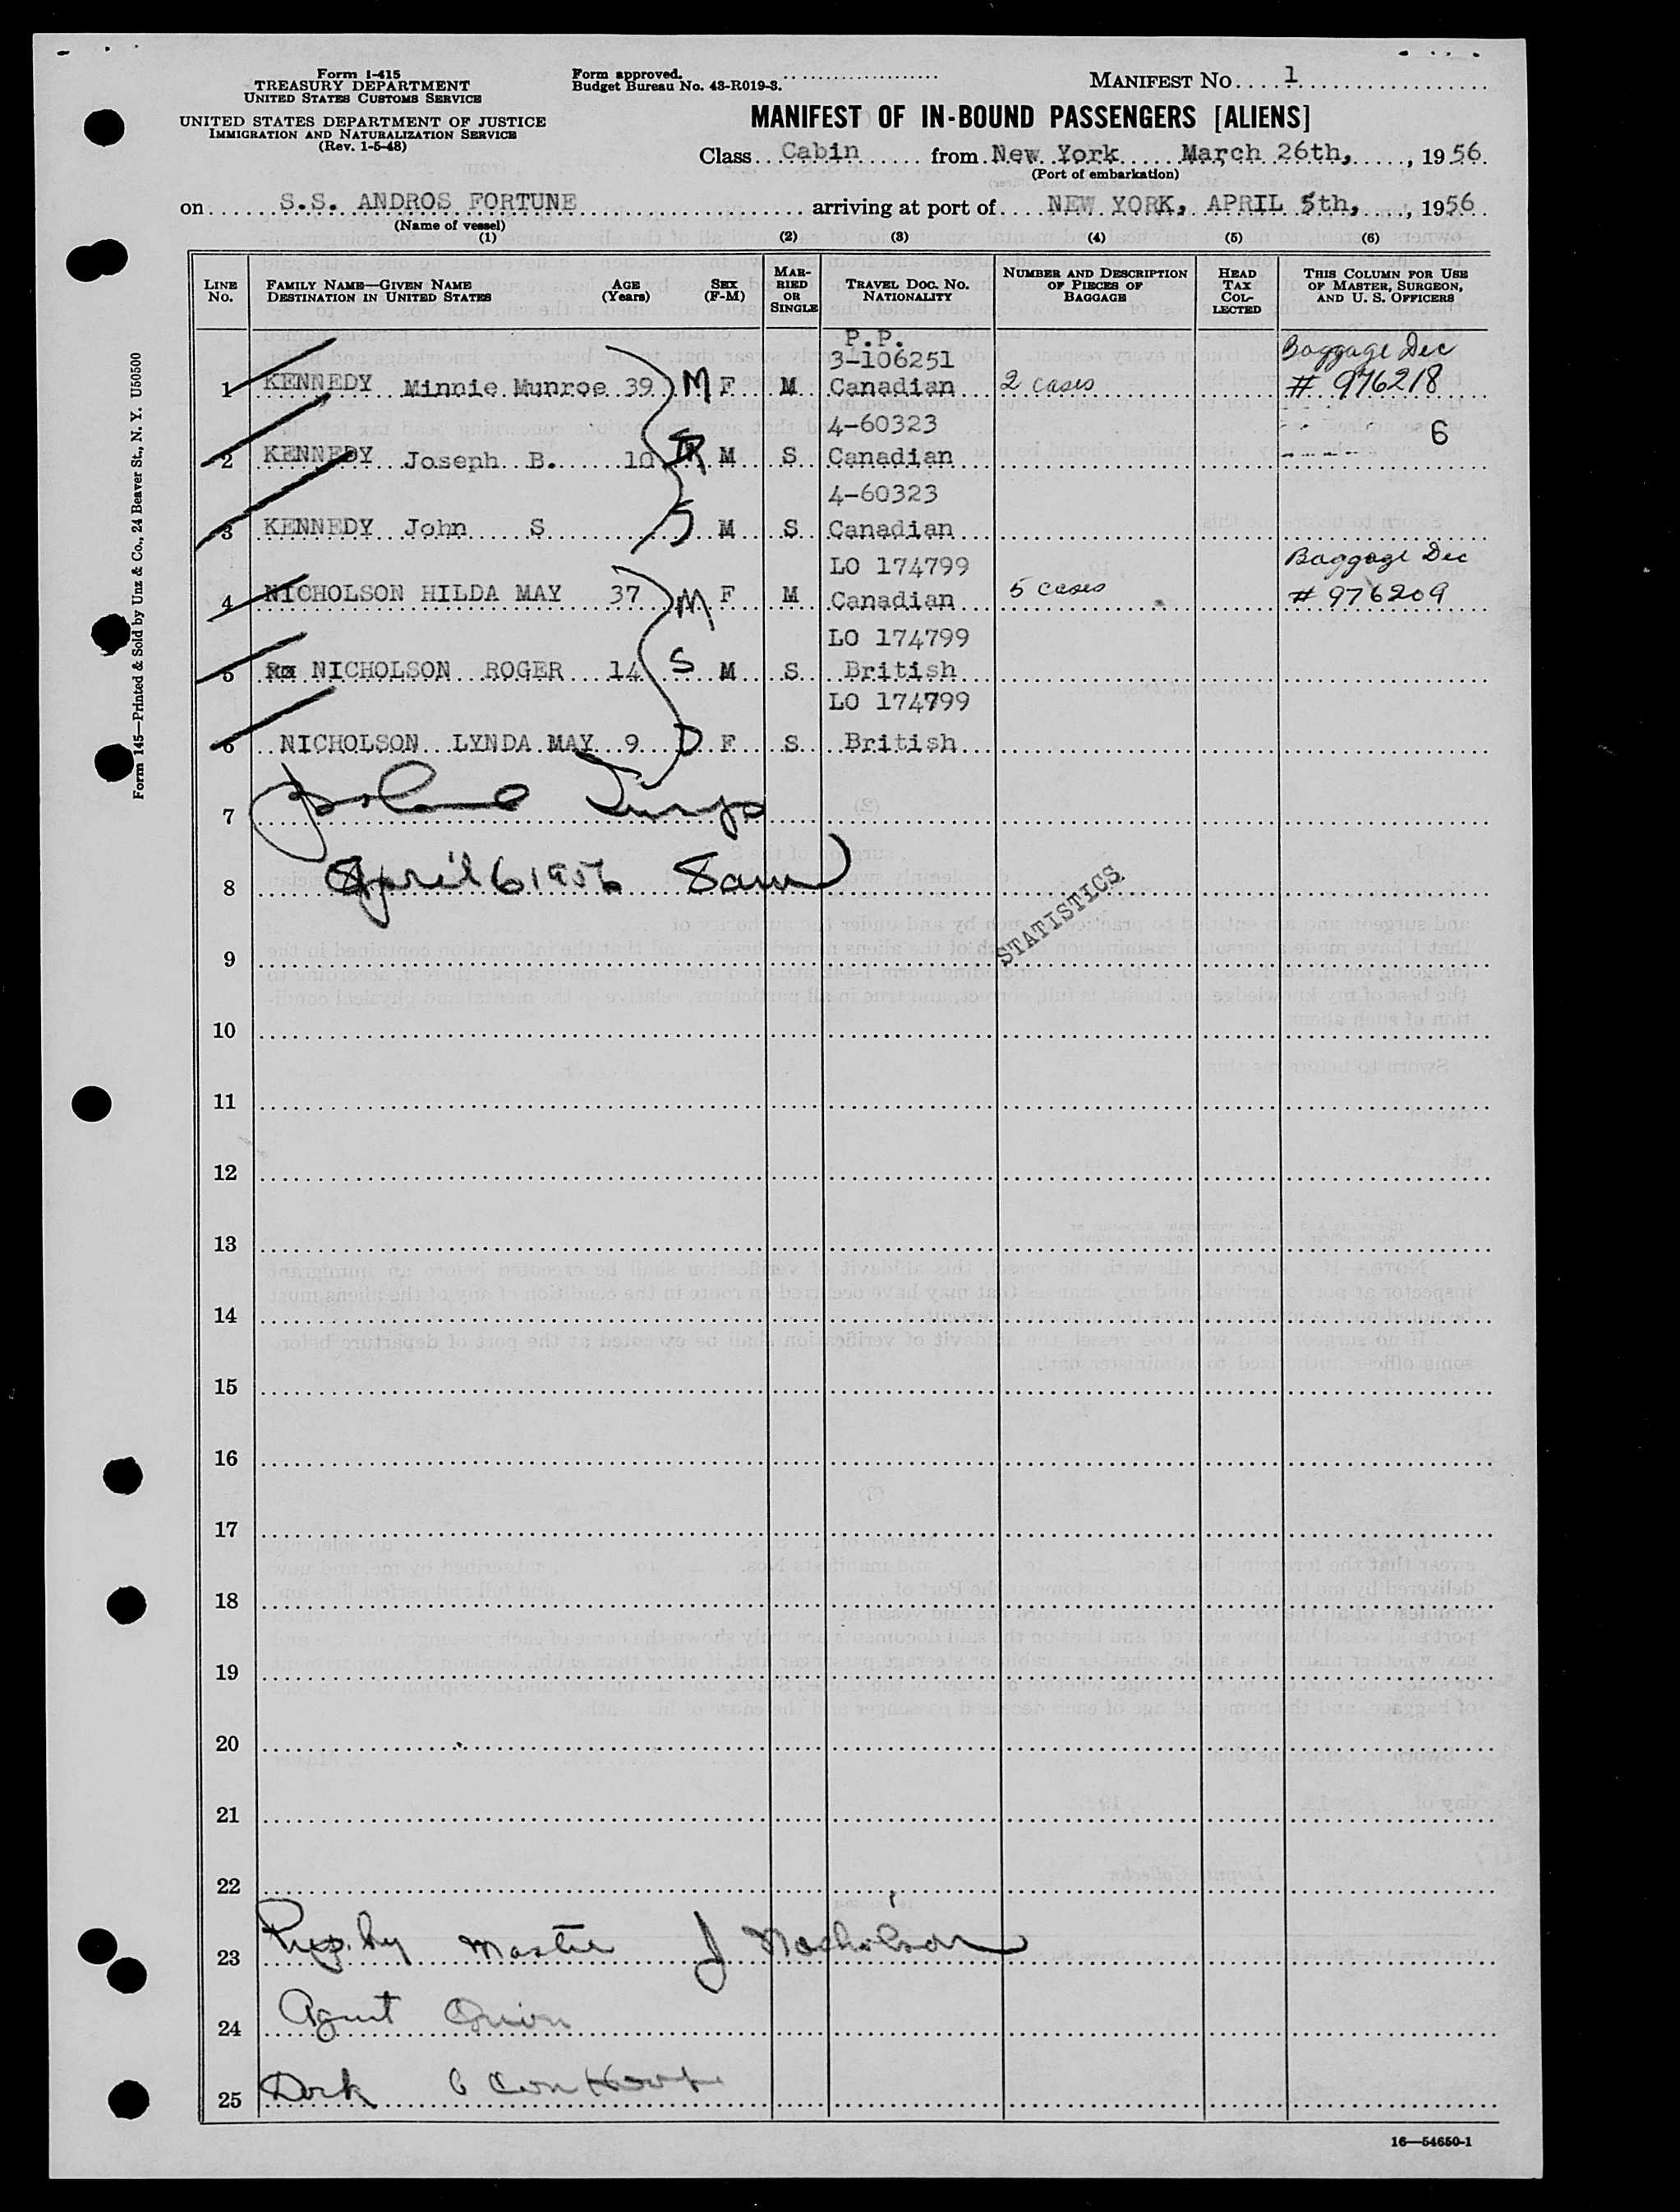 Form I-415
TREASURY DEPARTMENT
UNITED STATES CUSTOMS SERVICE
UNITED STATES DEPARTMENT OF JUSTICE
IMMIGRATION AND NATURALIZATION SERVICE
(Rev. 1-5-48)
Form approved.
Budget Bureau No. 43-R019-3.
MANIFEST NO. 1
MANIFEST OF IN-BOUND PASSENGERS [ALIENS]
Class Cabin from New York March 26th, , 1956
(Port of embarkation)
on S.S. ANDROS FORTUNE arriving at port of NEW YORK, APRIL 5th, , 1956
(Name of vessel)
(1) (2) (3) (4) (5) (6)
LINE No. FAMILY NAME—GIVEN NAME DESTINATION IN UNITED STATES AGE (Years) SEX (F-M) MARRIED OR SINGLE TRAVEL DOC. NO. NATIONALITY NUMBER AND DESCRIPTION OF PIECES OF BAGGAGE HEAD TAX COLLECTED THIS COLUMN FOR USE OF MASTER, SURGEON, AND U. S. OFFICERS
P.P.
3-106251 Baggage Dec
1 KENNEDY Minnie Munroe 39 M F M Canadian 2 cases # 976218
4-60323 6
2 KENNEDY Joseph B. 10 M S Canadian
4-60323
3 KENNEDY John S S M S Canadian
LO 174799 Baggage Dec
4 NICHOLSON HILDA MAY 37 M F M Canadian 5 cases # 976209
LO 174799
5 NICHOLSON ROGER 14 S M S British
LO 174799
6 NICHOLSON LYNDA MAY 9 D F S British
7
8 April 6 1956 8am
STATISTICS
9
10
11
12
13
14
15
16
17
18
19
20
21
22
23 by Master J Nicholson
24 Agent
25 Dock
16—54650-1
Form 145—Printed & Sold by Unz & Co., 24 Beaver St., N. Y. U50500